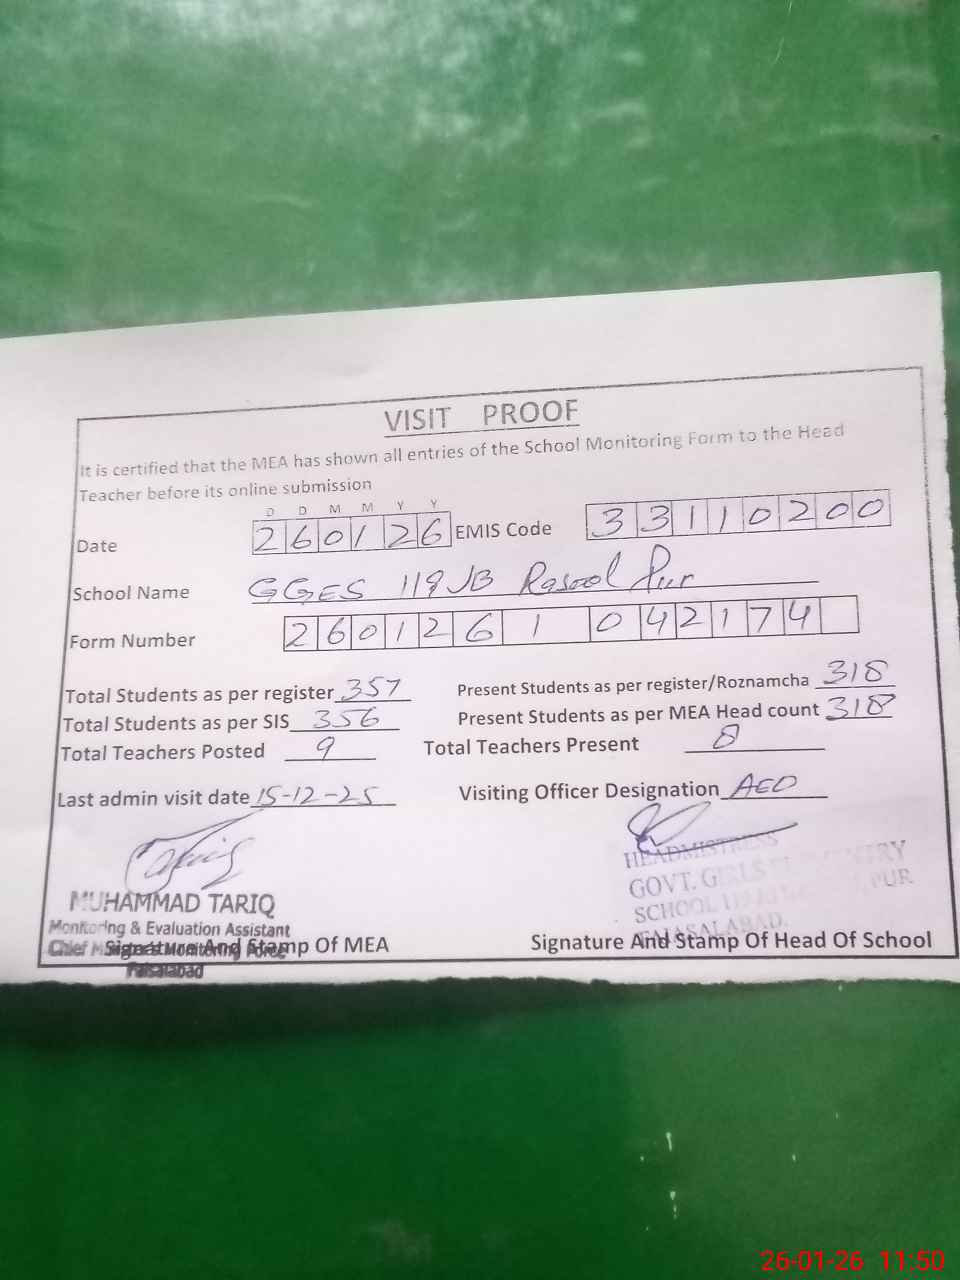 VISIT PROOF
It is certified that the MEA has shown all entries of the School Monitoring Form to the Head
Teacher before its online submission
D D M M Y Y
Date 260126 EMIS Code 33110200
School Name GGES 119 JB Rasool Pur
Form Number 2601261042174
Total Students as per register 357 Present Students as per register/Roznamcha 318
Total Students as per SIS 356 Present Students as per MEA Head count 318
Total Teachers Posted 9 Total Teachers Present 8
Last admin visit date 15-12-25 Visiting Officer Designation AEO
HEADMISTRESS
GOVT. GIRLS
SCHOOL PUR
FAISALABAD.
MUHAMMAD TARIQ
Monitoring & Evaluation Assistant
Chief Monitoring Force
Faisalabad
Signature And Stamp Of MEA Signature And Stamp Of Head Of School
26-01-26 11:50